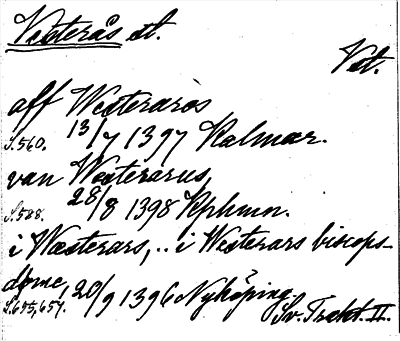 Västerås st.
Vst.
aff Westeraros
S.560. 13/7 1397 Kalmar.
van Westerarus,
S.588. 28/8 1398 Kphmn.
i Wæsterars, .. i Westerars biscops-
døme, 20/9 1396 Nyköping.
S.655,657. Sv. Trakt. II.